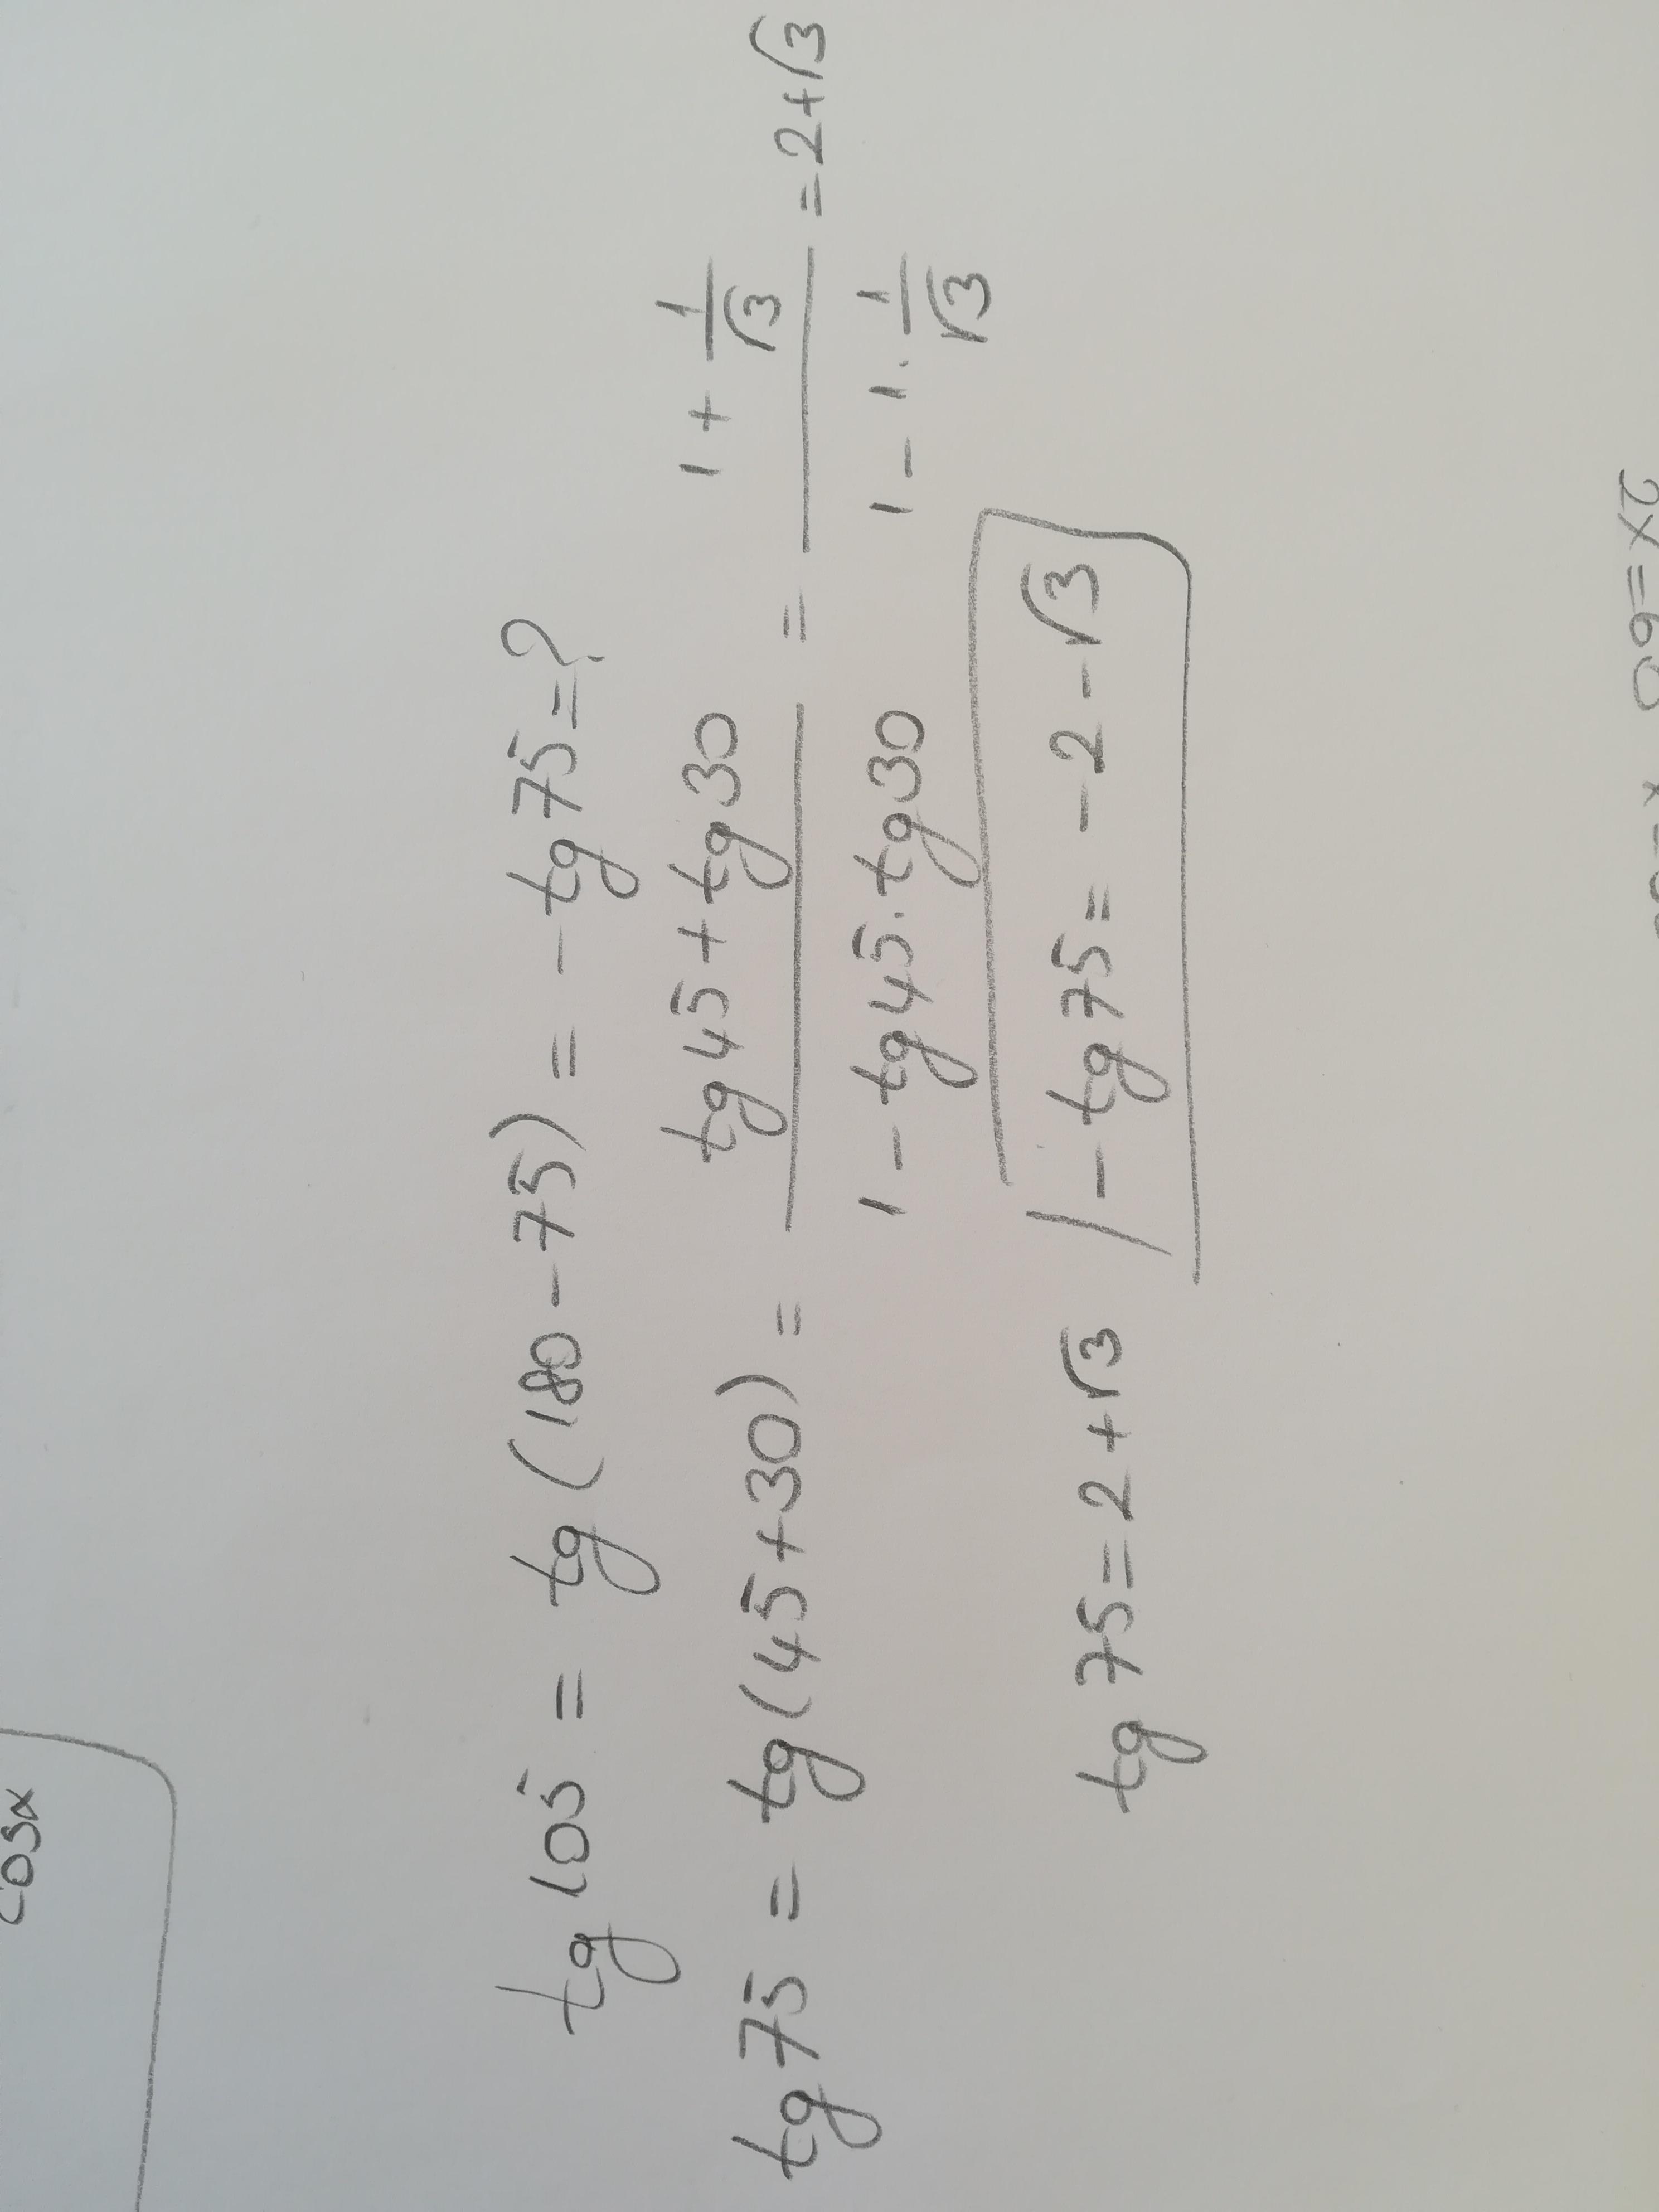 cosx
tg 105 = tg (180-75) = - tg 75=?
tg 75 = tg (45+30) = (tg 45 + tg 30) / (1 - tg 45 . tg 30) = (1 + 1/√3) / (1 - 1 . 1/√3) = 2+√3
tg 75 = 2+√3 / - tg 75 = -2-√3
2x=60